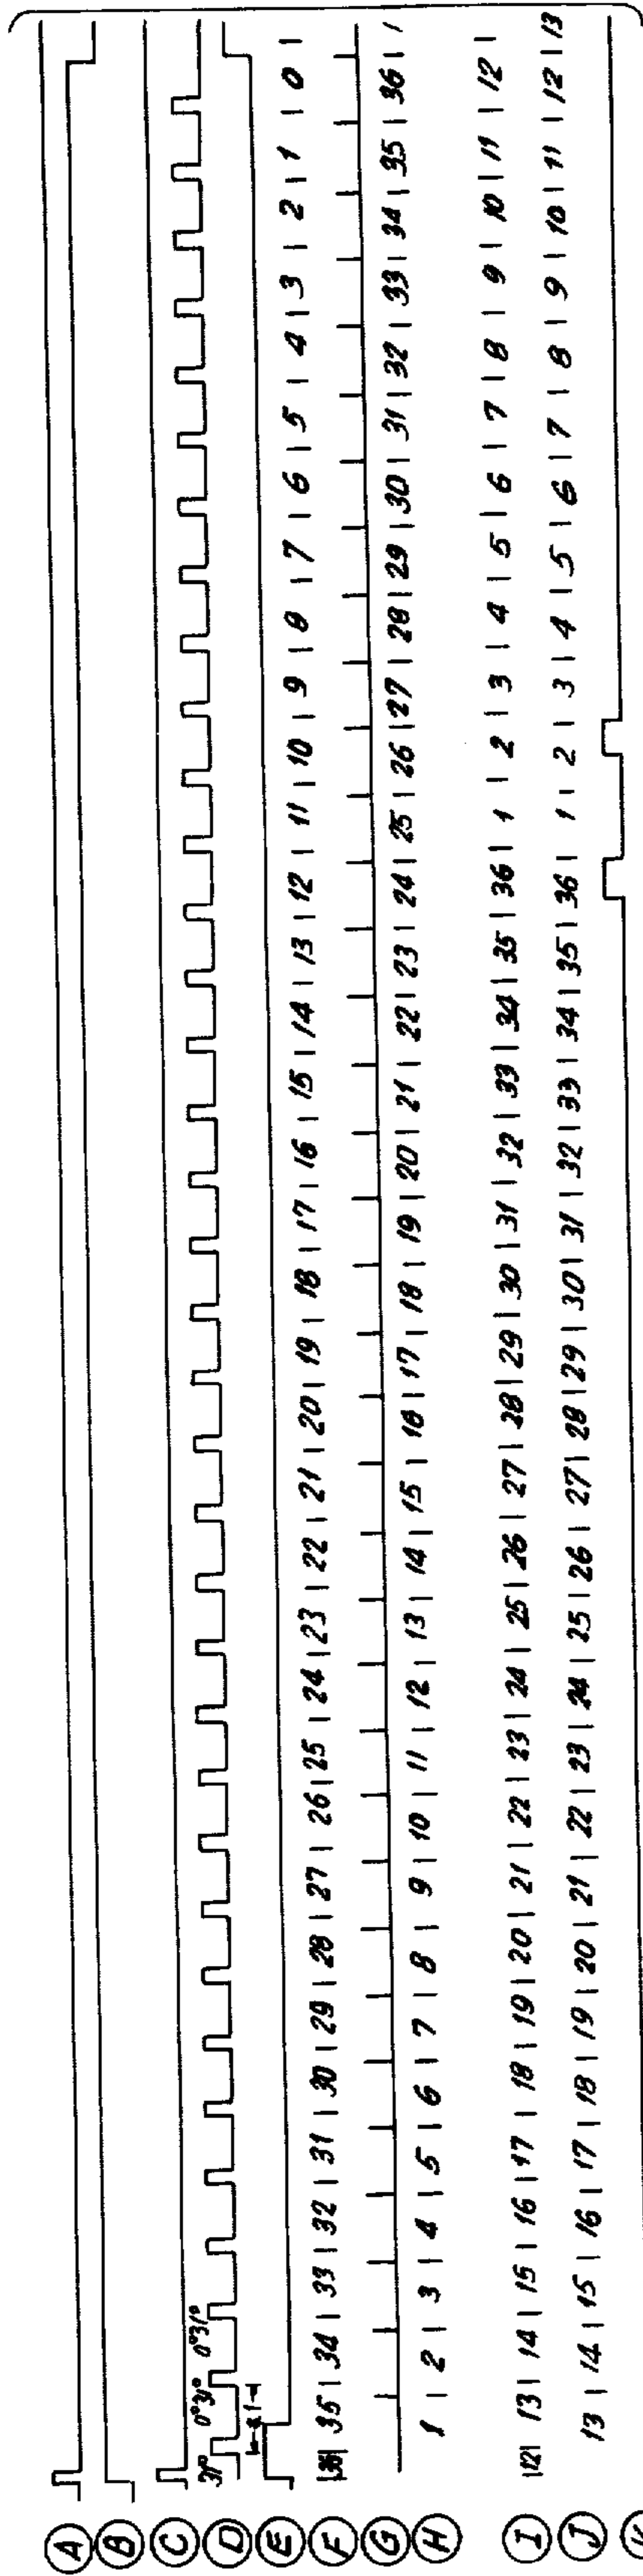 A
B
C
D 31° 0°31° 0°31°
E
F 36 | 35 | 34 | 33 | 32 | 31 | 30 | 29 | 28 | 27 | 26 | 25 | 24 | 23 | 22 | 21 | 20 | 19 | 18 | 17 | 16 | 15 | 14 | 13 | 12 | 11 | 10 | 9 | 8 | 7 | 6 | 5 | 4 | 3 | 2 | 1 | 0 |
G
H 1 | 2 | 3 | 4 | 5 | 6 | 7 | 8 | 9 | 10 | 11 | 12 | 13 | 14 | 15 | 16 | 17 | 18 | 19 | 20 | 21 | 22 | 23 | 24 | 25 | 26 | 27 | 28 | 29 | 30 | 31 | 32 | 33 | 34 | 35 | 36 | 1
I |12| 13 | 14 | 15 | 16 | 17 | 18 | 19 | 20 | 21 | 22 | 23 | 24 | 25 | 26 | 27 | 28 | 29 | 30 | 31 | 32 | 33 | 34 | 35 | 36 | 1 | 2 | 3 | 4 | 5 | 6 | 7 | 8 | 9 | 10 | 11 | 12 |
J 13 | 14 | 15 | 16 | 17 | 18 | 19 | 20 | 21 | 22 | 23 | 24 | 25 | 26 | 27 | 28 | 29 | 30 | 31 | 32 | 33 | 34 | 35 | 36 | 1 | 2 | 3 | 4 | 5 | 6 | 7 | 8 | 9 | 10 | 11 | 12 | 13
K